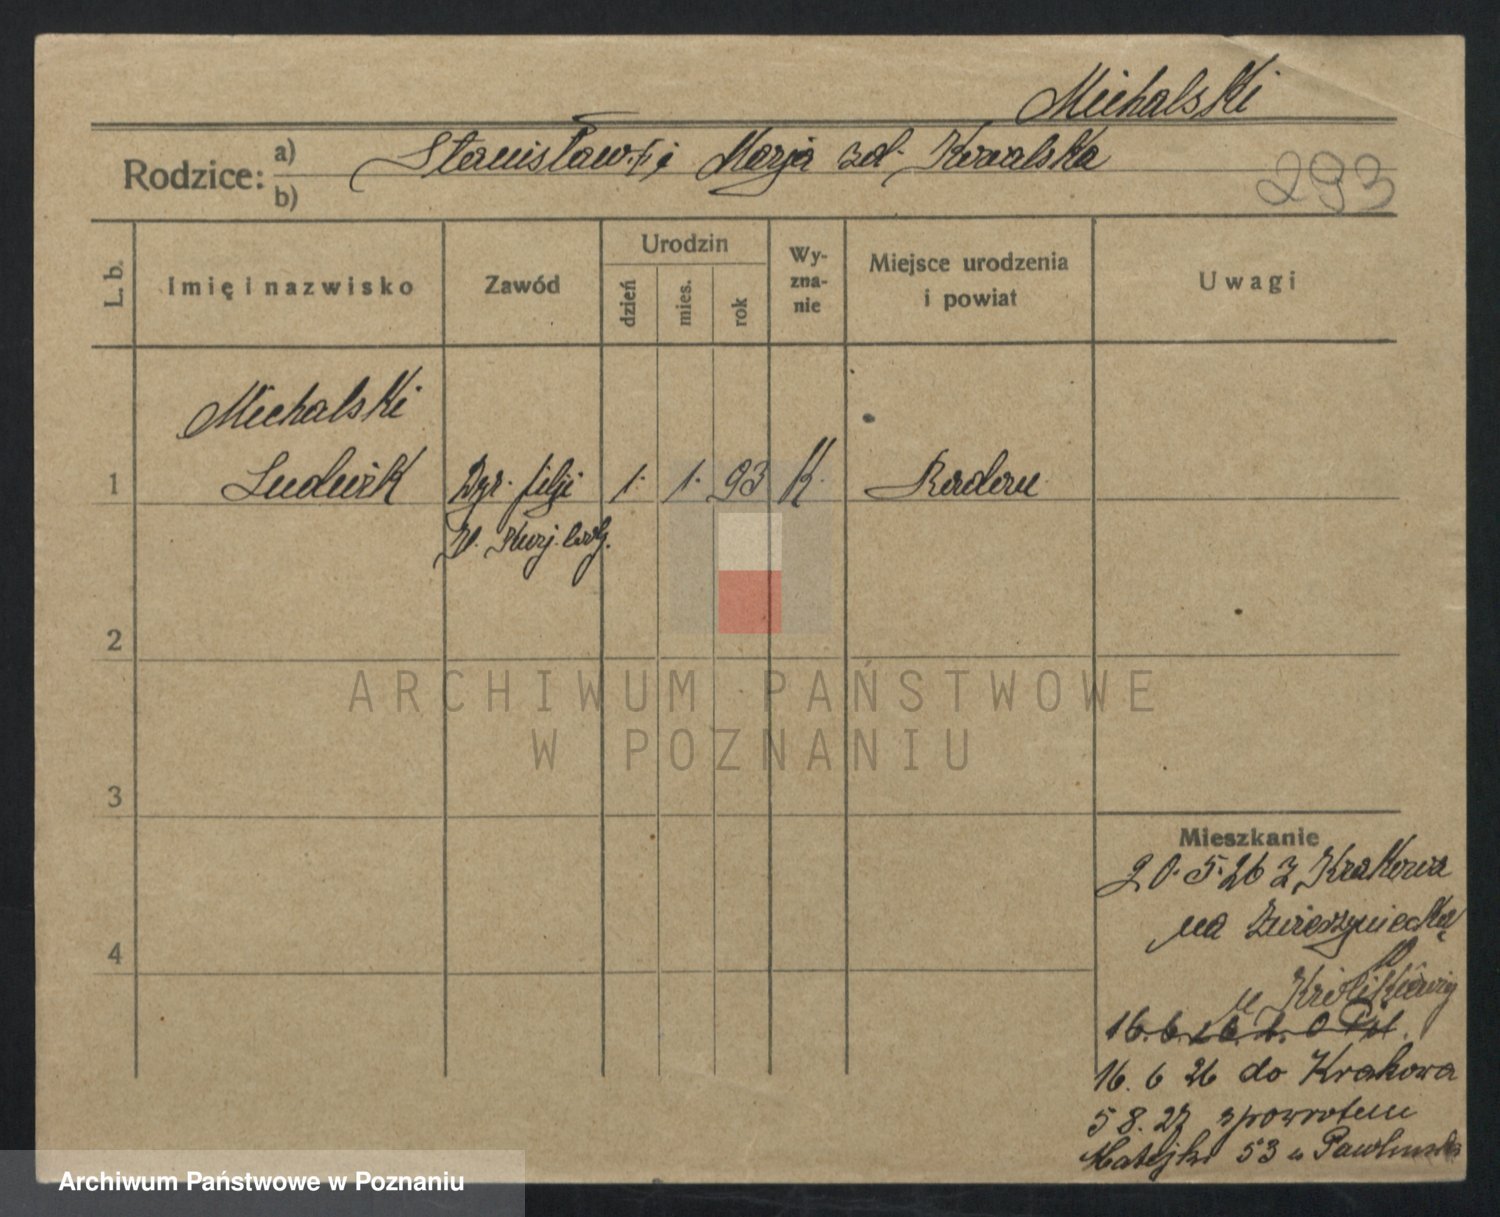 Michalski
Rodzice: a) Stanisław i Marja zd. Kowalska
b)
293
L. b. Imię i nazwisko Zawód Urodzin dzień mies. rok Wyznanie Miejsce urodzenia i powiat Uwagi
Michalski
1 Ludwik Dyr. filji 1. 1. 93 K.
Kurj.
2
ARCHIWUM PAŃSTWOWE
W POZNANIU
3
Mieszkanie
20. 5. 26 z Krakowa
na Zwierzyniecką
4
u
16. 6. 26
16. 6 26 do Krakowa
5 8. 27 zpowrotem
Matejki 53 u
Archiwum Państwowe w Poznaniu